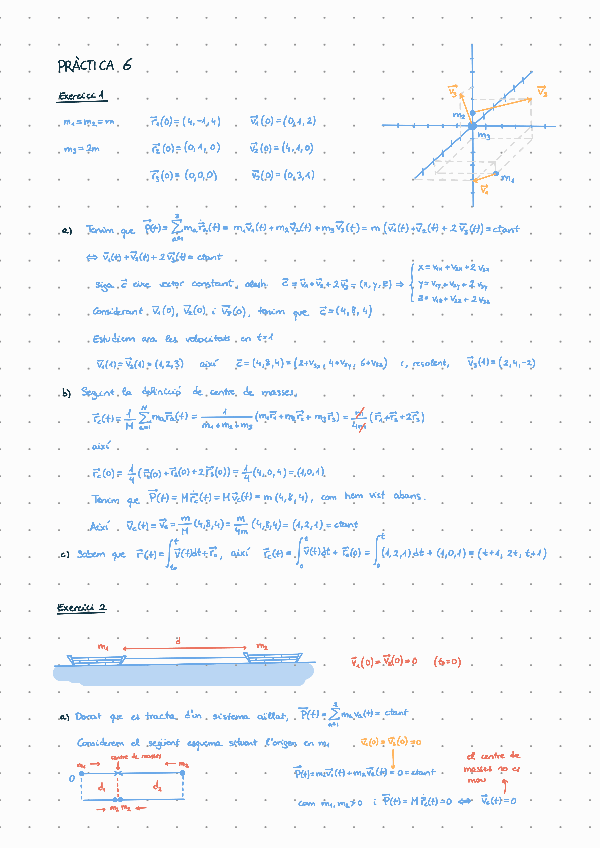 PRÀCTICA 6
Exercici 1
m₁=m₂=m   r⃗₁(0)=(4,-1,4)   v⃗₁(0)=(0,1,2)
m₃=2m   r⃗₂(0)=(0,1,0)   v⃗₂(0)=(4,1,0)
r⃗₃(0)=(0,0,0)   v⃗₃(0)=(0,3,1)
v⃗₃
v⃗₂
m₂
m₃
m₁
v⃗₁
a) Tenim que P⃗(t)=∑mₐṙ⃗ₐ(t)= m₁v⃗₁(t)+m₂v⃗₂(t)+m₃v⃗₃(t)= m[v⃗₁(t)+v⃗₂(t)+2v⃗₃(t)]=ctant
⇔ v⃗₁(t)+v⃗₂(t)+2v⃗₃(t)=ctant
Siga c⃗ eixe vector constant, aleshores c⃗=v⃗₁+v⃗₂+2v⃗₃=(x,y,z) ⇒ { x=v₁ₓ+v₂ₓ+2v₃ₓ
y=v₁y+v₂y+2v₃y
z=v₁z+v₂z+2v₃z
Considerant v⃗₁(0), v⃗₂(0) i v⃗₃(0), tenim que c⃗=(4,8,4)
Estudiem ara les velocitats en t=1
v⃗₁(1)=v⃗₂(1)=(1,2,3) així c⃗=(4,8,4)=(2+2v₃ₓ, 4+2v₃y, 6+2v₃z) i, resolent, v⃗₃(1)=(2,4,-2)
b) Seguint la definició de centre de masses,
r⃗c(t)= 1/M ∑mₐr⃗ₐ(t)= 1/(m₁+m₂+m₃) (m₁r⃗₁+m₂r⃗₂+m₃r⃗₃)= m/4m (r⃗₁+r⃗₂+2r⃗₃)
així
r⃗c(0)= 1/4 (r⃗₁(0)+r⃗₂(0)+2r⃗₃(0))= 1/4 (4,0,4)=(1,0,1)
Tenim que P⃗(t)=Mṙ⃗c(t)=Mv⃗c(t)=m(4,8,4), com hem vist abans.
Així v⃗c(t)=v⃗c= m/M (4,8,4)= m/4m (4,8,4)=(1,2,1)=ctant
c) Sabem que r⃗(t)=∫v⃗(t)dt+r⃗₀, així r⃗c(t)=∫v⃗(t)dt+r⃗c(0)=∫(1,2,1)dt+(1,0,1)=(t+1, 2t, t+1)
Exercici 2
m₁   d   m₂
v⃗₁(0)=v⃗₂(0)=0   (t₀=0)
a) Donat que es tracta d'un sistema aïllat, P⃗(t)=∑mₐvₐ(t)=ctant
Considerem el següent esquema situant l'origen en m₁
v⃗₁(0)=v⃗₂(0)=0
centre de masses
m₁   m₂
0
d₁   d₂
m₁ m₂
P⃗(t)=m₁v⃗₁(t)+m₂v⃗₂(t)=0=ctant
el centre de
masses no es
mou
com m₁,m₂≠0 i P⃗(t)=Mṙ⃗c(t)=0 ⇔ v⃗c(t)=0